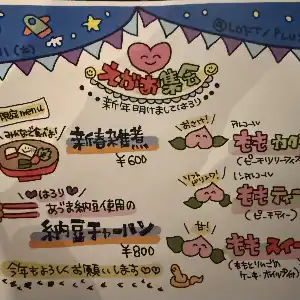 @LOFT/PLU
えがお集会
新年明けましてはろり
限定menu
みんなで食べよ!
新春お雑煮
¥600
はろり
あづま納豆使用の
納豆チャーハン
¥800
今年もよろしくお願いします
おさけ!
アルコール
ももカク
(ピーチソーダ
ソフトドリンク!
ノンアルコール
ももティー
(ピーチティー)
甘!
ももスイー
(ももとりんごの
ケーキ・ホイップ